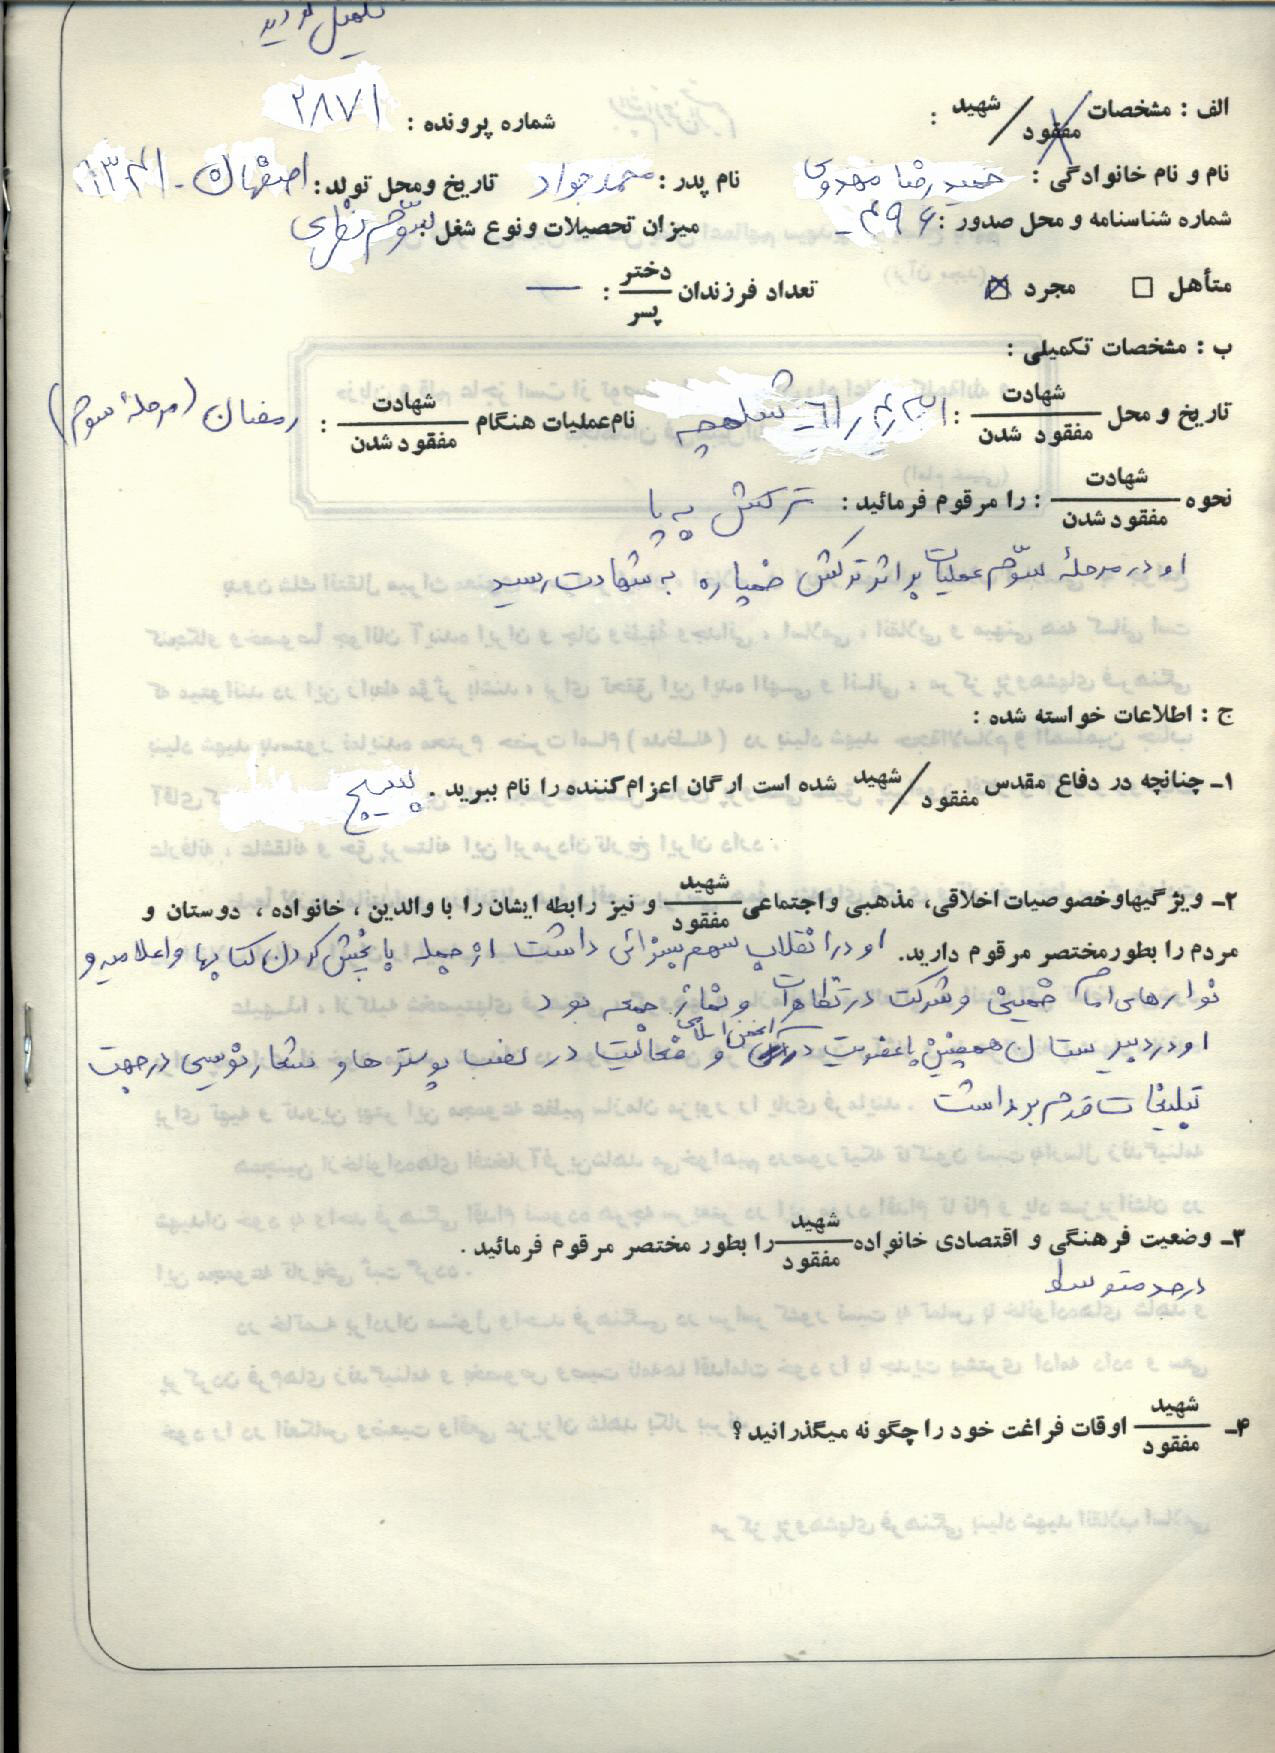 تکمیل گردید
الف : مشخصات شهید / مفقود :
شماره پرونده : ۲۸۷۱
نام و نام خانوادگی : حمیدرضا مهدوی نام پدر : محمدجواد تاریخ و محل تولد : اصفهان - ۱۳۴۱
شماره شناسنامه و محل صدور : ۴۹۶ - میزان تحصیلات و نوع شغل سوّم نظری
متأهل □ مجرد ☒ تعداد فرزندان دختر / پسر : —
ب : مشخصات تکمیلی :
تاریخ و محل شهادت / مفقود شدن : ۶۱/۴/ شلمچه نام عملیات هنگام شهادت / مفقود شدن : رمضان (مرحلهٔ سوم)
نحوه شهادت / مفقود شدن : را مرقوم فرمائید : ترکش به پا
او در مرحلهٔ سوّم عملیات بر اثر ترکش خمپاره به شهادت رسید
ج : اطلاعات خواسته شده :
۱ـ چنانچه در دفاع مقدس شهید / مفقود شده است ارگان اعزام کننده را نام ببرید . بسیج
۲ـ ویژگیها و خصوصیات اخلاقی، مذهبی و اجتماعی شهید / مفقود و نیز رابطه ایشان را با والدین ، خانواده ، دوستان و
مردم را بطور مختصر مرقوم دارید. او در انقلاب سهم بسزائی داشت از جمله با پخش کردن کتابها و اعلامیه و
نوارهای امام خمینی و شرکت در تظاهرات و نماز جمعه بود
او در دبیرستان همچنین با عضویت در انجمن اسلامی و فعالیت در نصب پوسترها و شعارنویسی در جهت
تبلیغات قدم برداشت
۳ـ وضعیت فرهنگی و اقتصادی خانواده شهید / مفقود را بطور مختصر مرقوم فرمائید .
در حد متوسط
۴ـ شهید / مفقود اوقات فراغت خود را چگونه میگذرانید ؟